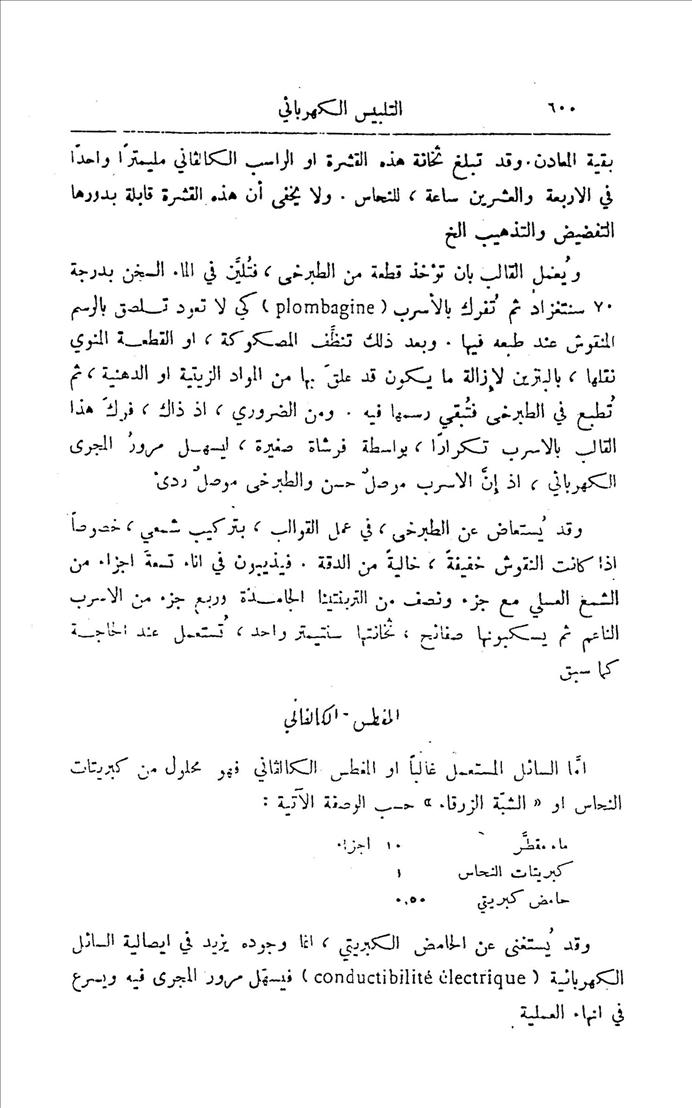 ٦٠٠
التلبيس الكهربائي
بقية المعادن. وقد تبلغ ثخانة هذه القشرة او الراسب الكالڤاني مليمترًا واحدًا
في الاربعة والعشرين ساعة، للنحاس. ولا يخفى أن هذه القشرة قابلة بدورها
التفضيض والتذهيب الخ
ويُعمل القالب بان تؤخذ قطعة من الطبرخى، فتُليَّن في الماء السخن بدرجة
٧٠ سنتغراد ثم تُفرك بالأسرب (plombagine) كي لا تعود تلصق بالرسم
المنقوش عند طبعه فيها. وبعد ذلك تنظَّف المصكوكة، او القطعة المنوي
نقلها، بالبترين لإزالة ما يكون قد علقَ بها من المواد الزيتية او الدهنية، ثم
تُطبع في الطبرخى فتُبقي رسمها فيه. ومن الضروري، اذ ذاك، فركَ هذا
القالب بالاسرب تكرارًا، بواسطة فرشاة صغيرة، ليسهل مرورُ المجرى
الكهربائي، اذ إنَّ الاسرب موصلٌ حسن والطبرخى موصلٌ ردىْ
وقد يُستعاض عن الطبرخى، في عمل القوالب، بتركيب شمعي، خصوصاً
اذا كانت النقوش خفيفةً، خاليةً من الدقة. فيذيبون في اناء تسعةَ اجزاء من
الشمع العسلي مع جزء ونصف من التربنتينا الجامدة وربع جزء من الاسرب
الناعم ثم يسكبونها صفائح، ثخانتها سنتيمتر واحد، تُستعمل عند الحاجة
كما سبق
المغطس الكالڤاني
امَّا السائل المستعمل غالباً او المغطس الكالڤاني فهو محلول من كبريتات
النحاس او « الشبّة الزرقاء » حسب الوصفة الآتية :
ماء مقطَّر ١٠ اجزاء
كبريتات النحاس ١
حامض كبريتي ٠,٥٠
وقد يُستغنى عن الحامض الكبريتي، انما وجوده يزيد في ايصالية السائل
الكهربائية (conductibilité électrique) فيسهّل مرور المجرى فيه ويسرع
في انهاء العملية